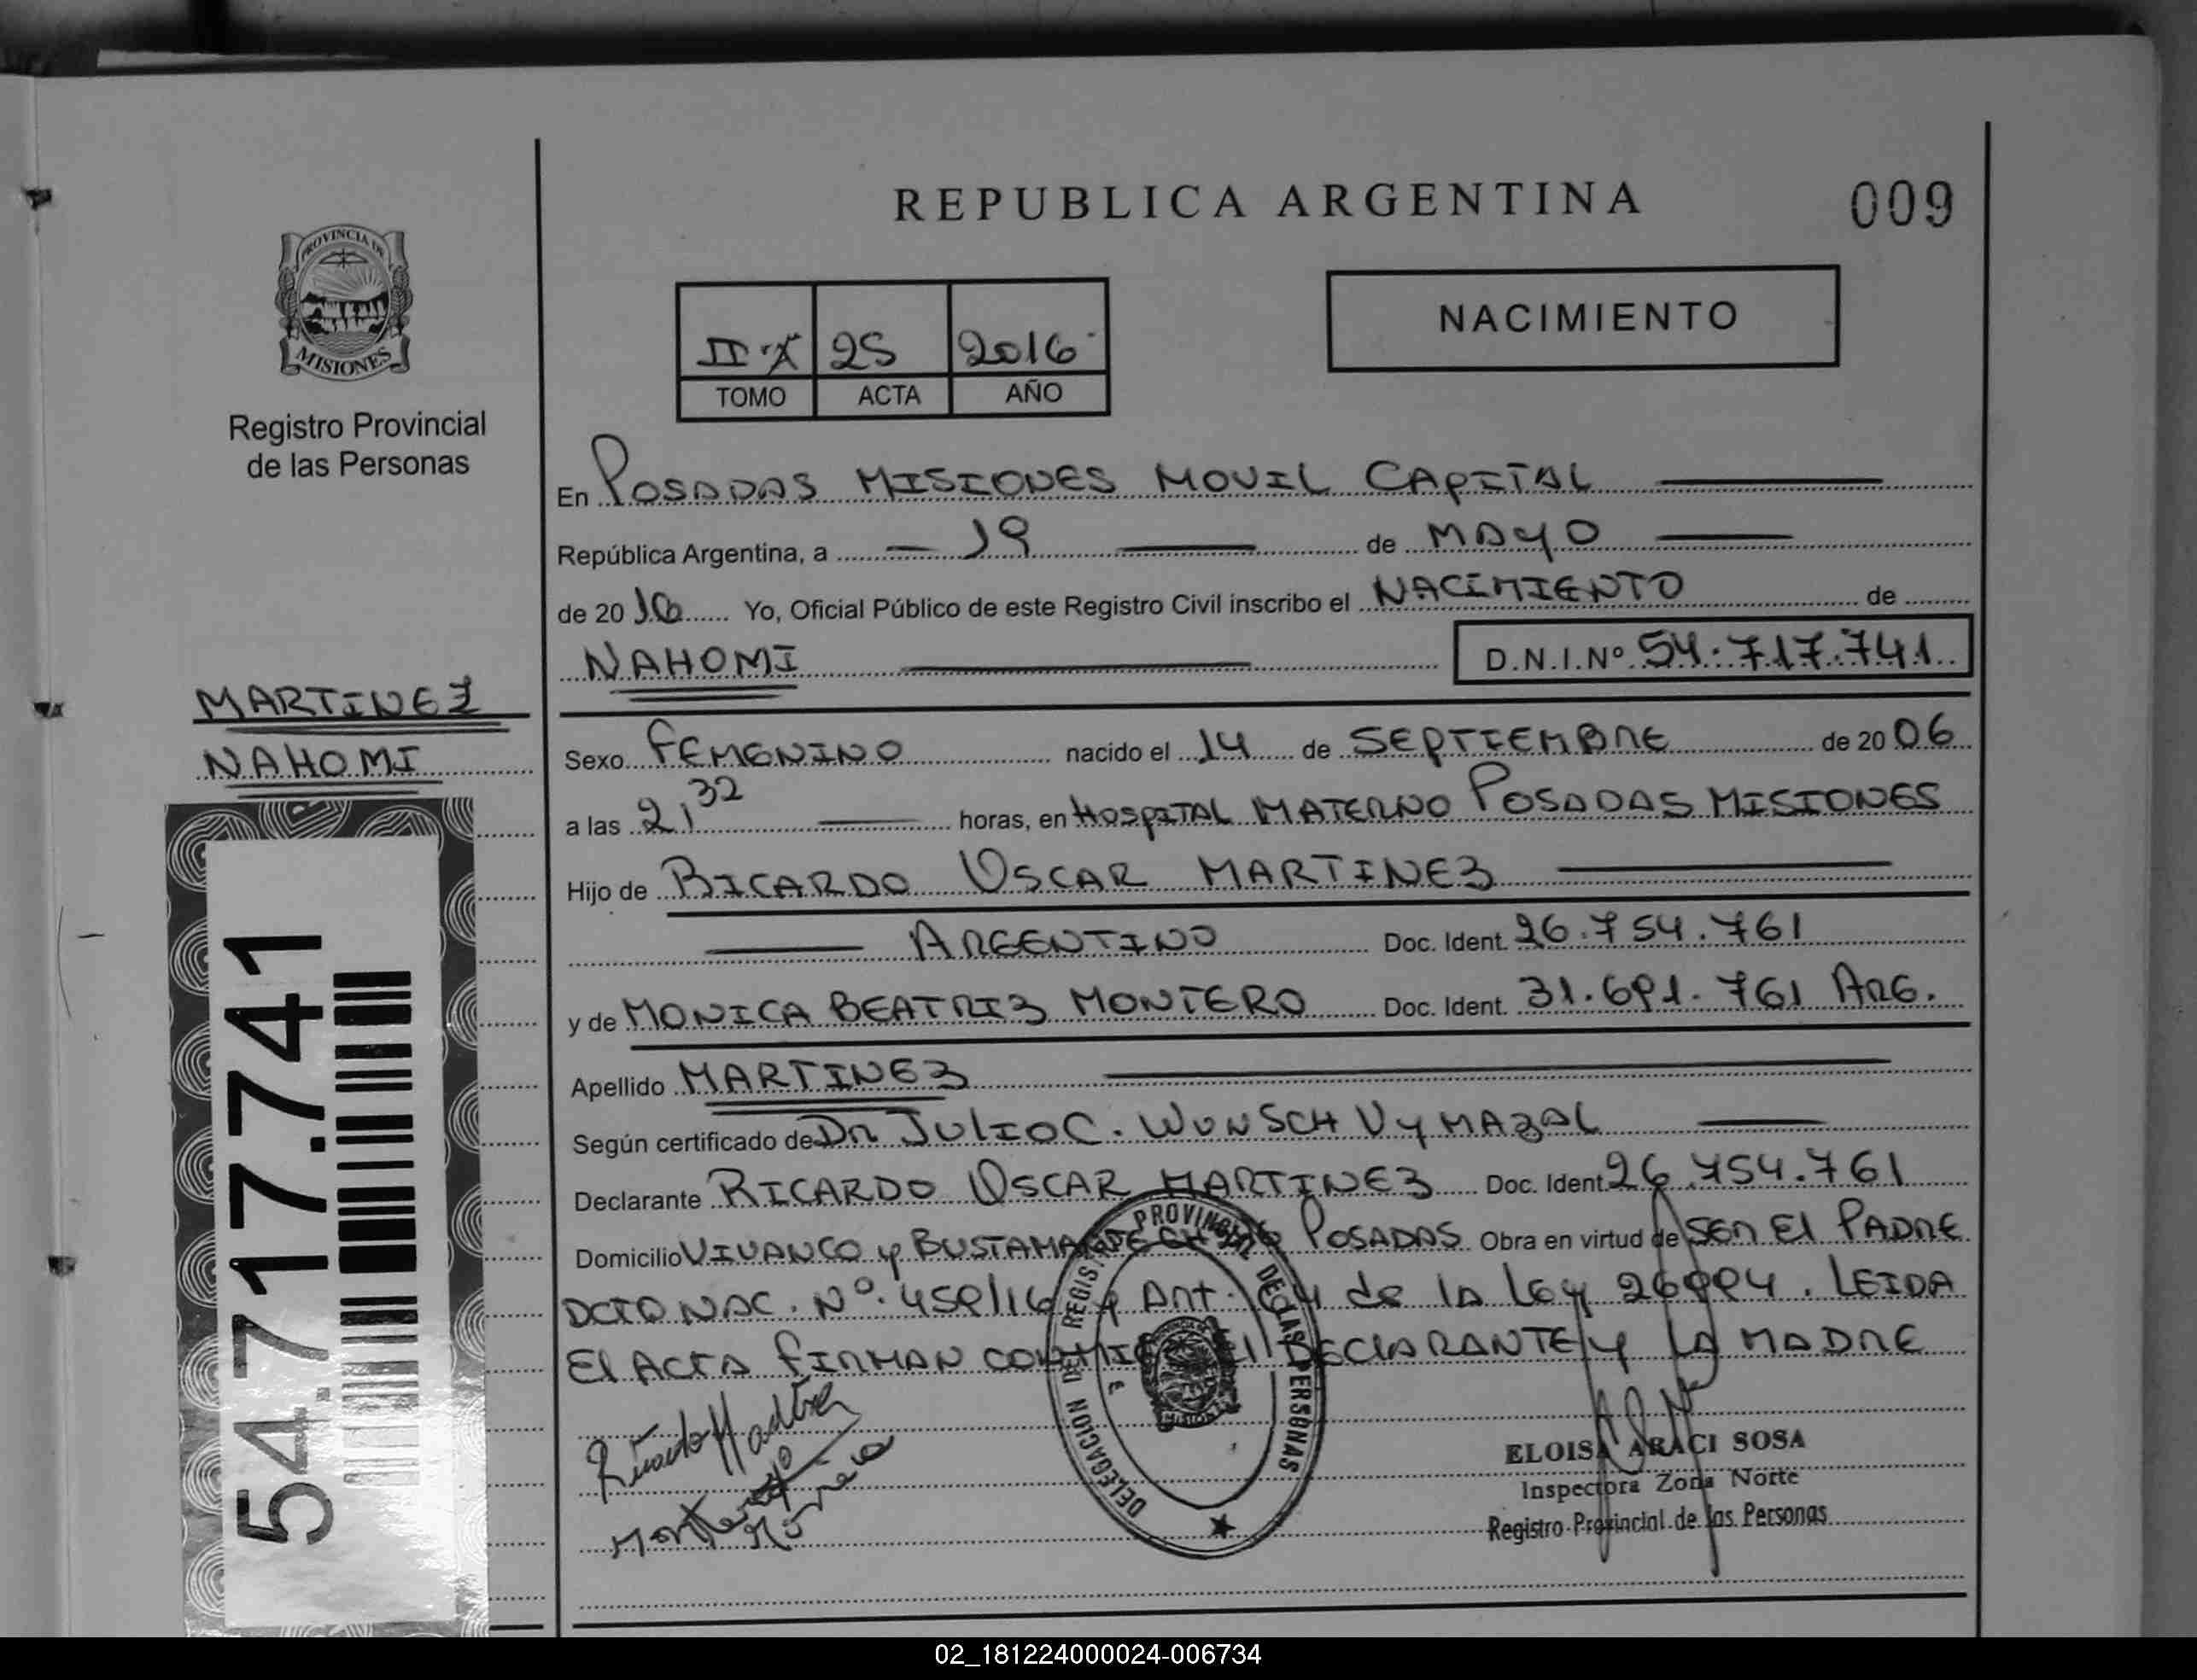 REPUBLICA ARGENTINA
009
PROVINCIA DE
MISIONES
Registro Provincial
de las Personas
NACIMIENTO
25 2016
TOMO ACTA AÑO
En POSADAS MISIONES MOVIL CAPITAL
República Argentina, a 19 de MAYO
de 20 16 Yo, Oficial Público de este Registro Civil inscribo el NACIMIENTO de
NAHOMI D.N.I.Nº 54.717.741
MARTINEZ
NAHOMI
54.717.741
Sexo FEMENINO nacido el 14 de SEPTIEMBRE de 20 06
a las 21 32 horas, en HOSPITAL MATERNO POSADAS MISIONES
Hijo de RICARDO OSCAR MARTINEZ
ARGENTINO Doc. Ident. 26.754.761
y de MONICA BEATRIZ MONTERO Doc. Ident. 31.691.761 ARG.
Apellido MARTINEZ
Según certificado de DR JULIO C. WUNSCH VYMAZAL
Declarante RICARDO OSCAR MARTINEZ Doc. Ident. 26.754.761
Domicilio VIVANCO y BUSTAMANTE POSADAS Obra en virtud de SER El PADRE
DCTO NAC. Nº. 459/16 y Art. 64 de la Ley 26994. LEIDA
El ACTA FIRMAN CONMIGO El DECLARANTE y LA MADRE
DELEGACION DEL REGISTRO PROVINCIAL DE LAS PERSONAS
MISIONES
Montero
Mónica
ELOISA ARACI SOSA
Inspectora Zona Norte
Registro Provincial de las Personas
02_181224000024-006734